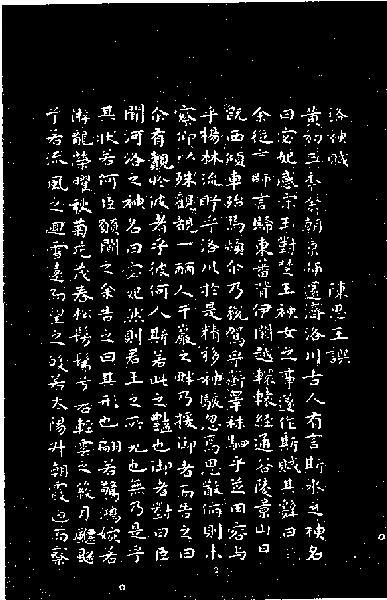 洛神賦 陳思王譔
黃初三年余朝京師還濟洛川古人有言斯水之神名
曰宓妃感宋玉對楚王神女之事遂作斯賦其辭曰
余從京師言歸東藩背伊闕越轘轅經通谷陵景山日
既西傾車殆馬煩尒乃稅駕乎蘅皋秣駟乎芝田容与
乎楊林流眄乎洛川於是精移神駭忽焉思散俯則未
察仰以殊觀覩一麗人于巖之畔乃援御者而告之曰
尒有覿於彼者乎彼何人斯若此之豔也御者對曰臣
聞河洛之神名曰宓妃然則君王之所見也無乃是乎
其狀若何臣願聞之余告之曰其形也翩若驚鴻婉若
游龍榮曜秋菊華茂春松髣髴兮若輕雲之蔽月飄颻
兮若流風之迴雪遠而望之皎若太陽升朝霞迫而察